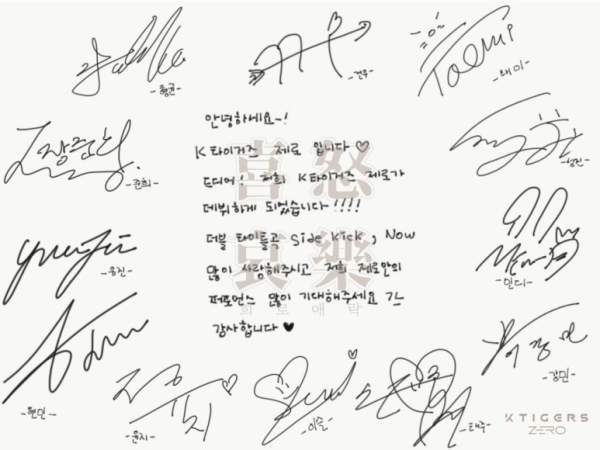 -형균-
-건우-
Taemi
-태미-
안녕하세요~!
K타이거즈 제로 입니다♡
드디어! 저희 K타이거즈 제로가
데뷔하게 되었습니다!!!!
더블 타이틀곡 Side Kick, Now
많이 사랑해주시고 저희 제로만의
퍼포먼스 많이 기대해주세요 기는
감사합니다♥
喜怒
哀樂
희로애락
-성진-
장준희
-준희-
-유진-
-민디-
-강민-
-현민-
-윤지-
-이슬-
-태주-
KTIGERS
ZERO